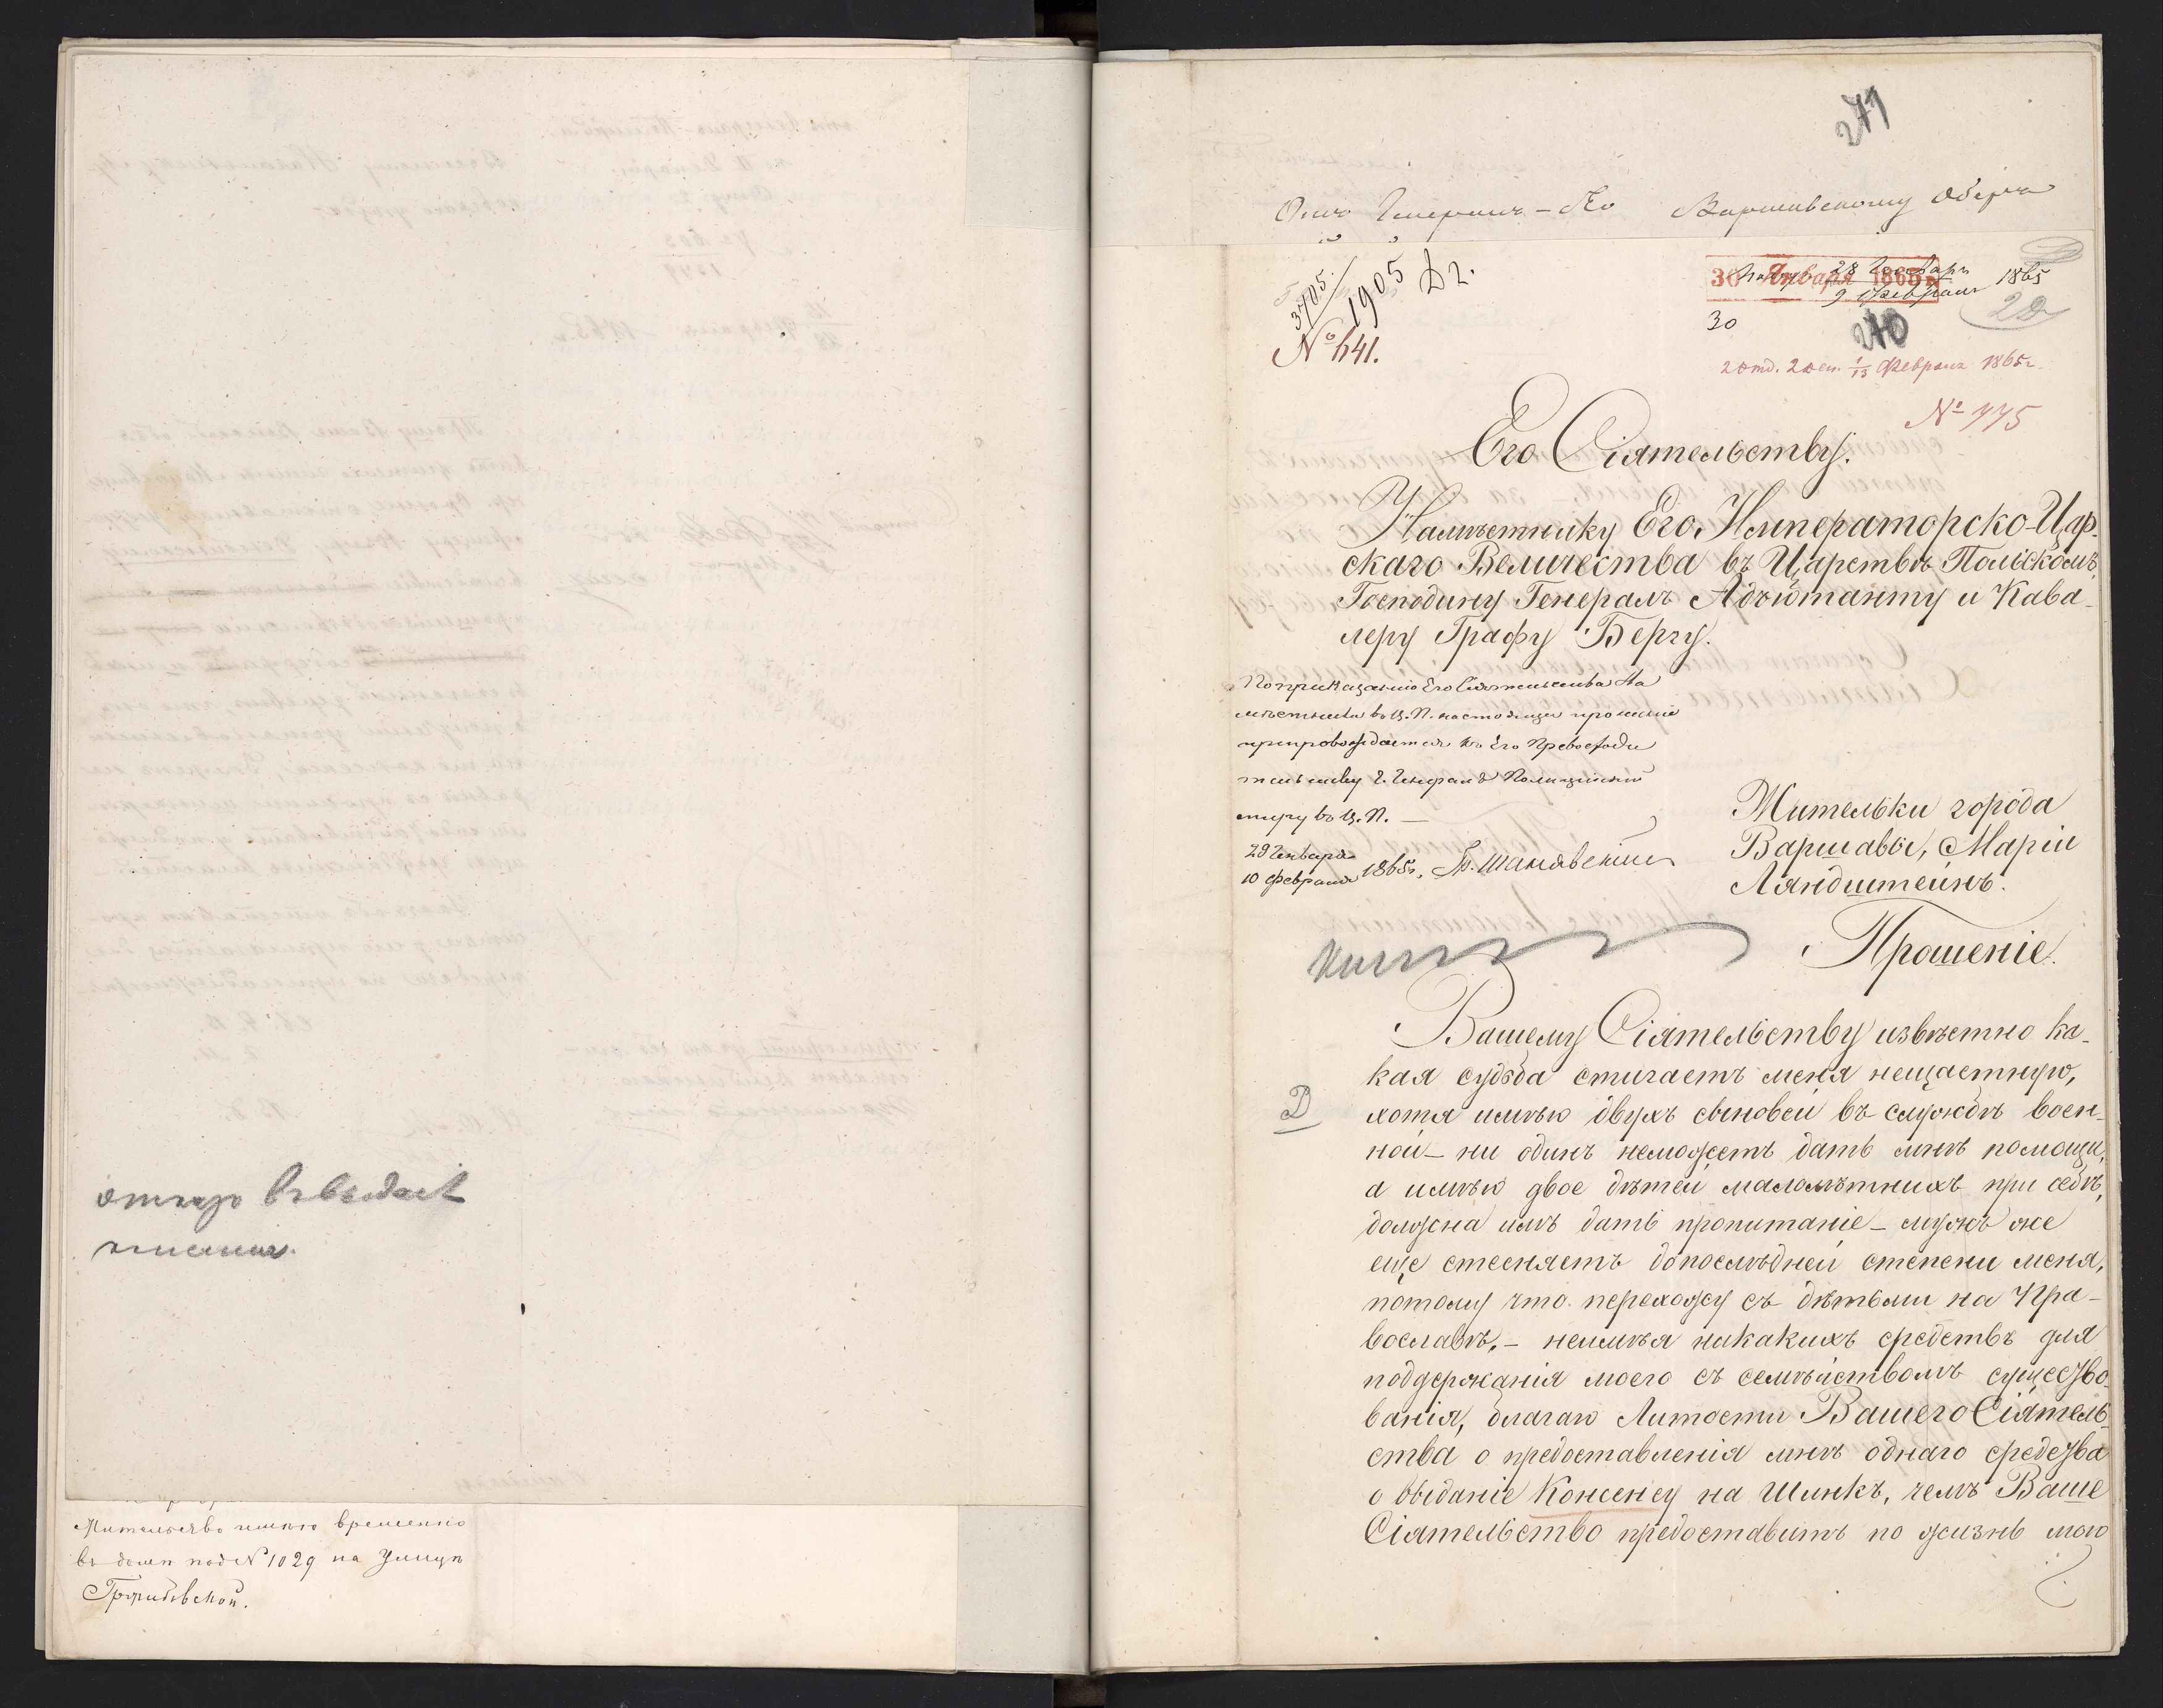 Жительство имѣю временно
въ домѣ под № 1029 на Улицѣ
Гржибовской.
271
Варшавскому Оберъ
3705/1905 Д2.
№ 641.
30 Января 1865
28 Января
9 Февраля 1865
30
270
2 отд. 2 ст. 1/13 Февраля 1865 г.
№ 775
Его Сіятельству.
Намѣстнику Его Императорско-Цар-
скаго Величества въ Царствѣ Польскомъ,
Господину Генералъ Адъютанту и Кава-
леру Графу Бергу.
По приказанію Его Сіятельства На
мѣстника въ Ц. П. настоящее прошеніе
препровождается къ Его Превосходи
тельству Г. Генералъ Полиціймей
стеру въ Ц. П. —
29 Января
10 Февраля 1865 г.
Жительки города
Варшавы, Маріи
Ляндштейнъ.
Прошеніе.
Вашему Сіятельству извѣстно ка-
кая судьба стигаетъ меня нещастную,
Д
хотя имѣю двухъ сыновей въ службѣ воен-
ной — ни одинъ неможетъ дать мнѣ помощи,
а имѣю двое дѣтей малолѣтнихъ при себѣ,
должна имъ дать пропитаніе — мужъ же
еще стесняетъ допослѣдней степени меня,
потому что перехожу съ дѣтьми на Пра-
вославѣ, — неимѣя никакихъ средствъ для
поддержанія моего съ семѣйствомъ существо-
ванія, благаю Литости Вашего Сіятель-
ства о предоставленія мнѣ однаго средства
о выданіе Консенсу на Шинкъ, чемъ Ваше
Сіятельство предоставитъ по жизнь мою